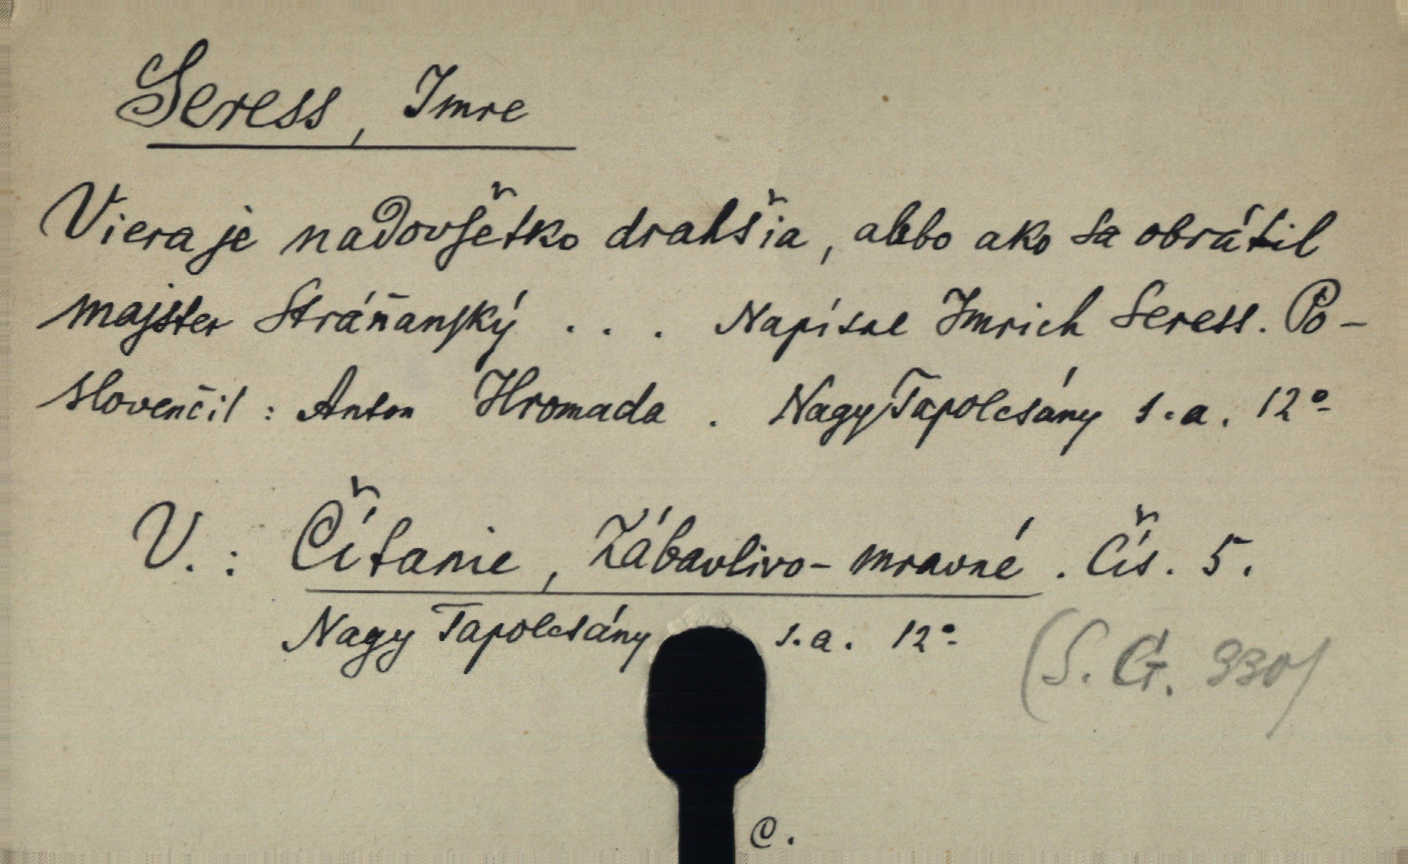 Seress, Imre
Viera je nadovšetko drahšia, alebo ako sa obrátil
majster Stráňanský . . . Napísal Imrich Seress. Po-
slovenčil: Anton Hromada. Nagy Tapolcsány s.a. 12°
V.: Čítanie, Zábavlivo-mravné. Čís. 5.
Nagy Tapolcsány s.a. 12°
(S. G. 330)
C.